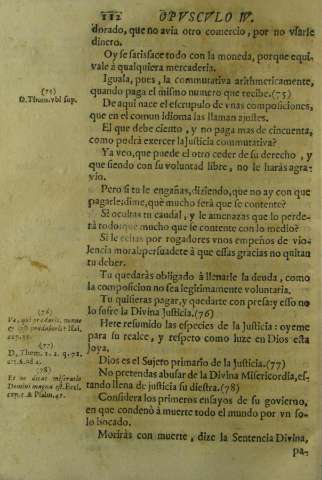 112 OPVSCVLO IV.
dorado, que no avia otro comercio, por no vsarse
dinero.
Oy se satisface todo con la moneda, porque equi-
vale à qualquiera mercaderia.
Iguala, pues, la commutativa arithmeticamente,
quando paga el mismo numero que recibe.(75)
(75)
D.Thom.vbi sup.
De aqui nace el escrupulo de vnas composiciones,
que en el comun idioma las llaman ajustes.
El que debe ciento, y no paga mas de cincuenta,
como podrà exercer la Justicia commutativa?
Ya veo, que puede el otro ceder de su derecho, y
que siendo con su voluntad libre, no le haràs agra-
vio.
Pero si tu le engañas, diziendo, que no ay con que
pagarle: dime, què mucho serà que se contente?
Si ocultas tu caudal, y le amenazas que lo perde-
rà todo: què mucho que se contente con lo medio?
Si le echas por rogadores vnos empeños de vio-
lencia moral: persuadete à que essas gracias no quitan
tu deber.
Tu quedaràs obligado à llenarle la deuda, como
la composicion no sea legitimamente voluntaria.
Tu quisieras pagar, y quedarte con presa: y esso no
lo sufre la Divina Justicia.(76)
(76)
Hete resumido las especies de la Justicia: oyeme
para su realce, y respeto como luze en Dios esta
Joya.
(77)
D.Thom. 1. 2. q.
Dios es el Sujeto primario de la Justicia.(77)
No pretendas abusar de la Divina Misericordia, es-
tando llena de justicia su diestra.(78)
(78)
Et ne dicas: miseratio
Domini magna est. Eccl.
Considera los primeros ensayos de su govierno,
en que condenò à muerte todo el mundo por vn so-
lo bocado.
Moriràs con muerte, dize la Sentencia Divina,
pa-